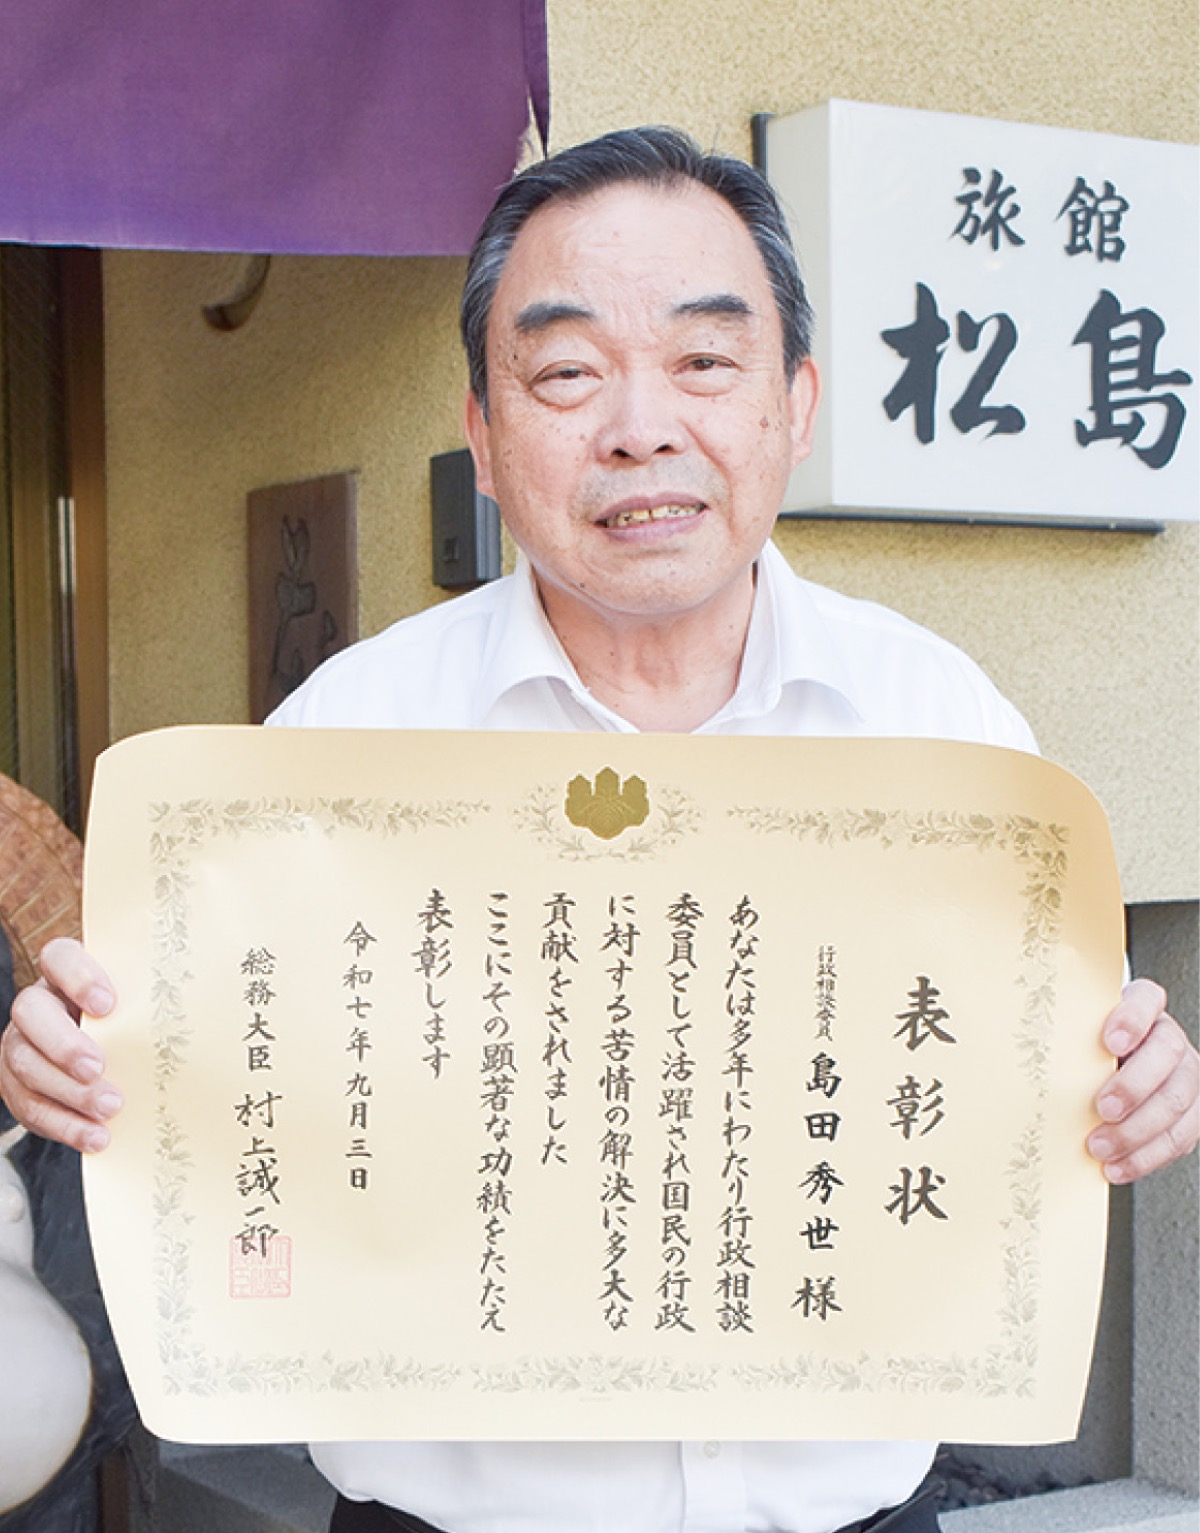 旅館
松島
表彰状
行政相談委員 島田秀世様
あなたは多年にわたり行政相談
委員として活躍され国民の行政
に対する苦情の解決に多大な
貢献をされました
ここにその顕著な功績をたたえ
表彰します
令和七年九月三日
総務大臣 村上誠一郎